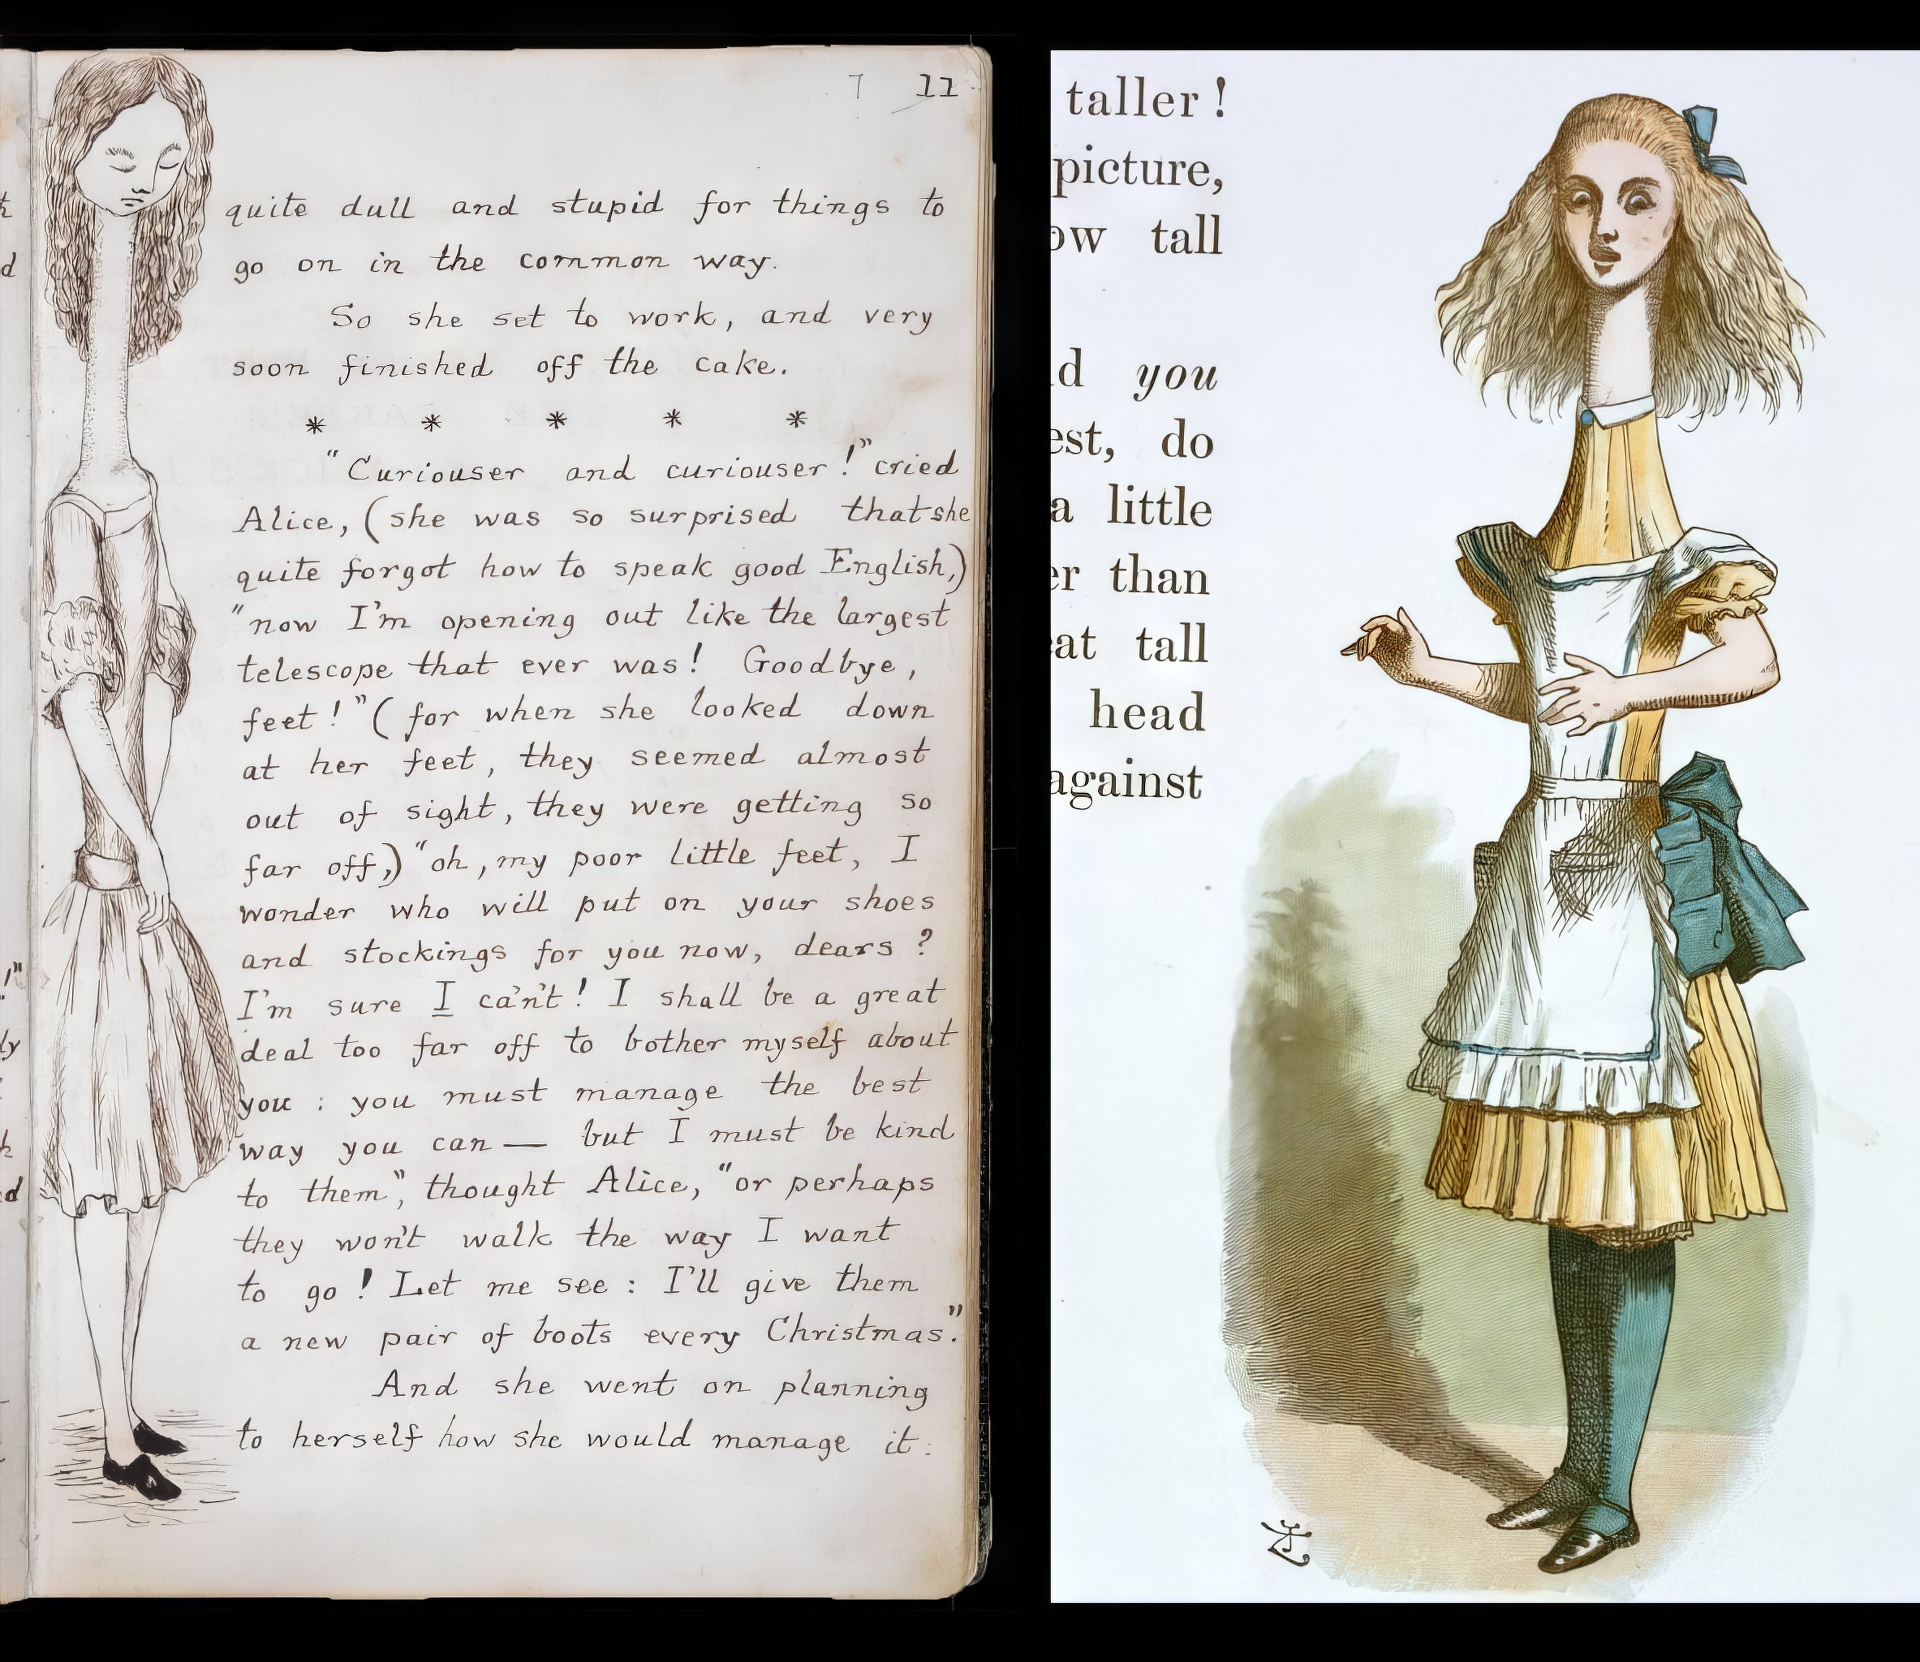 7 11
quite dull and stupid for things to
go on in the common way.
So she set to work, and very
soon finished off the cake.
* * * * *
"Curiouser and curiouser!" cried
Alice, (she was so surprised that she
quite forgot how to speak good English,)
"now I'm opening out like the largest
telescope that ever was! Goodbye,
feet!" (for when she looked down
at her feet, they seemed almost
out of sight, they were getting so
far off,) "oh, my poor little feet, I
wonder who will put on your shoes
and stockings for you now, dears?
I'm sure I ca'n't! I shall be a great
deal too far off to bother myself about
you: you must manage the best
way you can — but I must be kind
to them", thought Alice, "or perhaps
they won't walk the way I want
to go! Let me see: I'll give them
a new pair of boots every Christmas."
And she went on planning
to herself how she would manage it:
taller!
picture,
ow tall
d you
est, do
a little
er than
eat tall
head
against